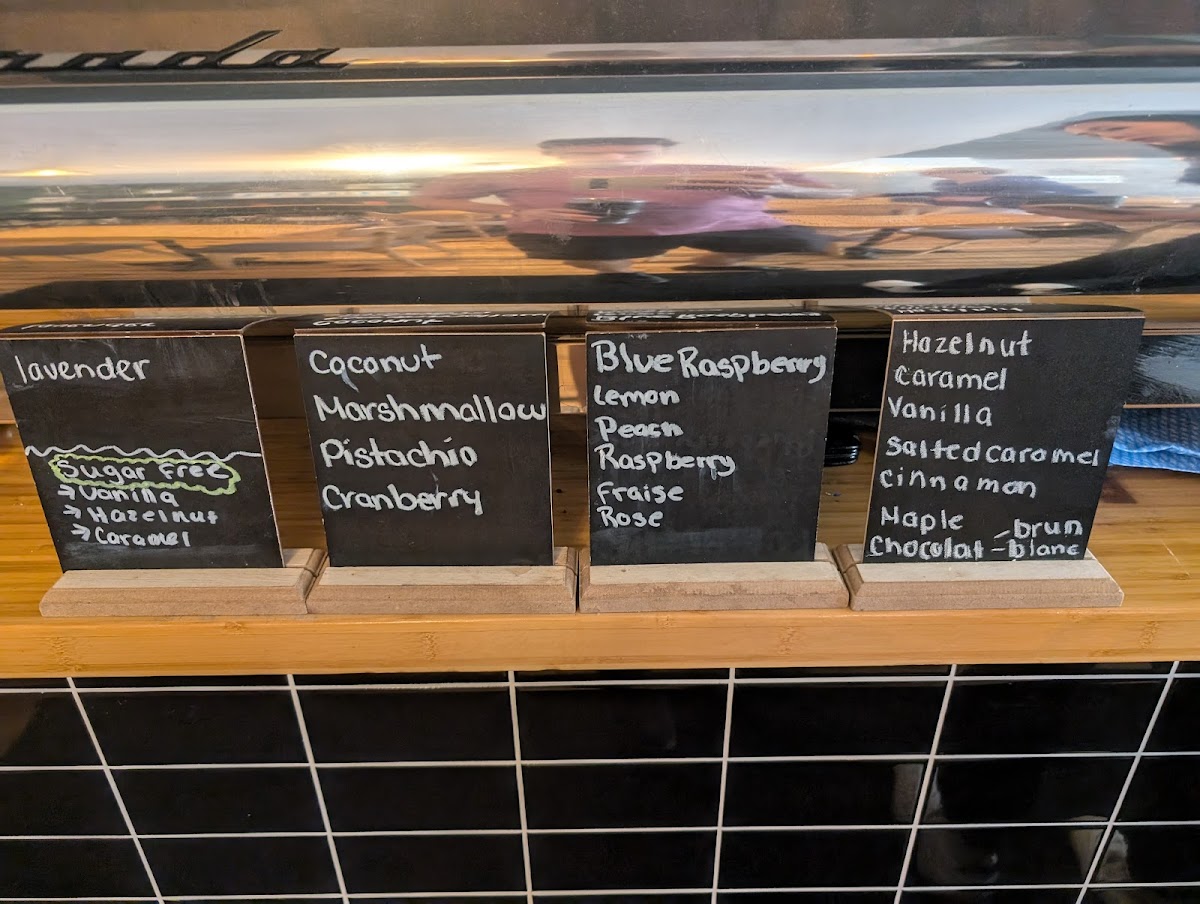 lavender
Sugar Free
→ Vanilla
→ Hazelnut
→ Caramel
Coconut
Marshmallow
Pistachio
Cranberry
Blue Raspberry
Lemon
Peach
Raspberry
Fraise
Rose
Hazelnut
Caramel
Vanilla
Salted caramel
Cinnamon
Maple
Chocolat - brun
- blanc